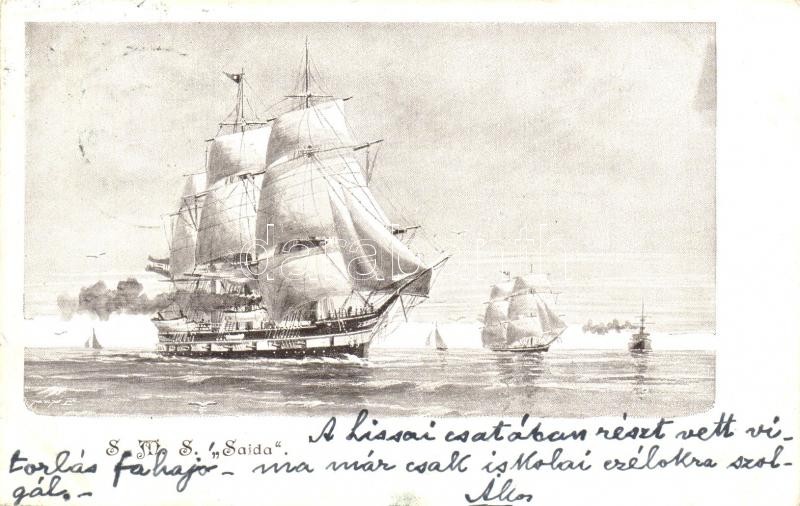 darabanth
S. M. S. „Saida“.
A Lissai csatában részt vett vi-
torlás fahajó – ma már csak iskolai czélokra szol-
gál. –
Ákos